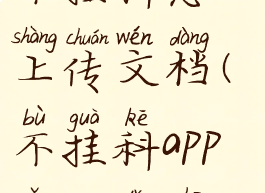 shàng chuán wén dàng
上传文档(
bù guà kē
不挂科app